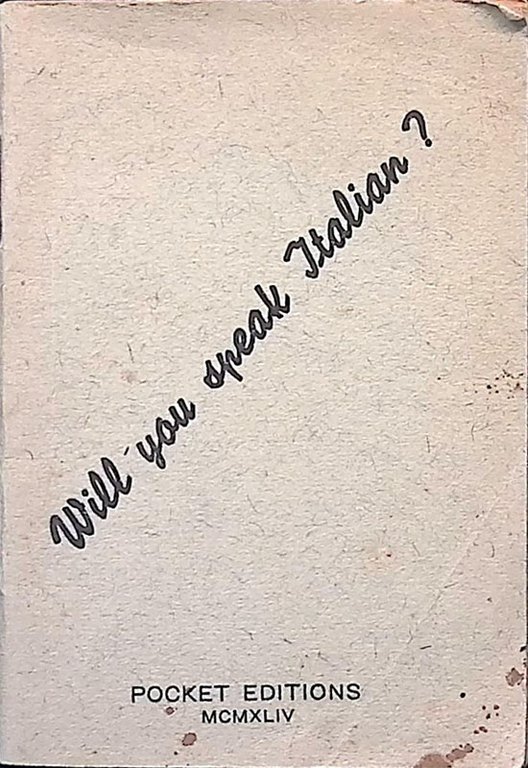 Will you speak Italian?
POCKET EDITIONS
MCMXLIV